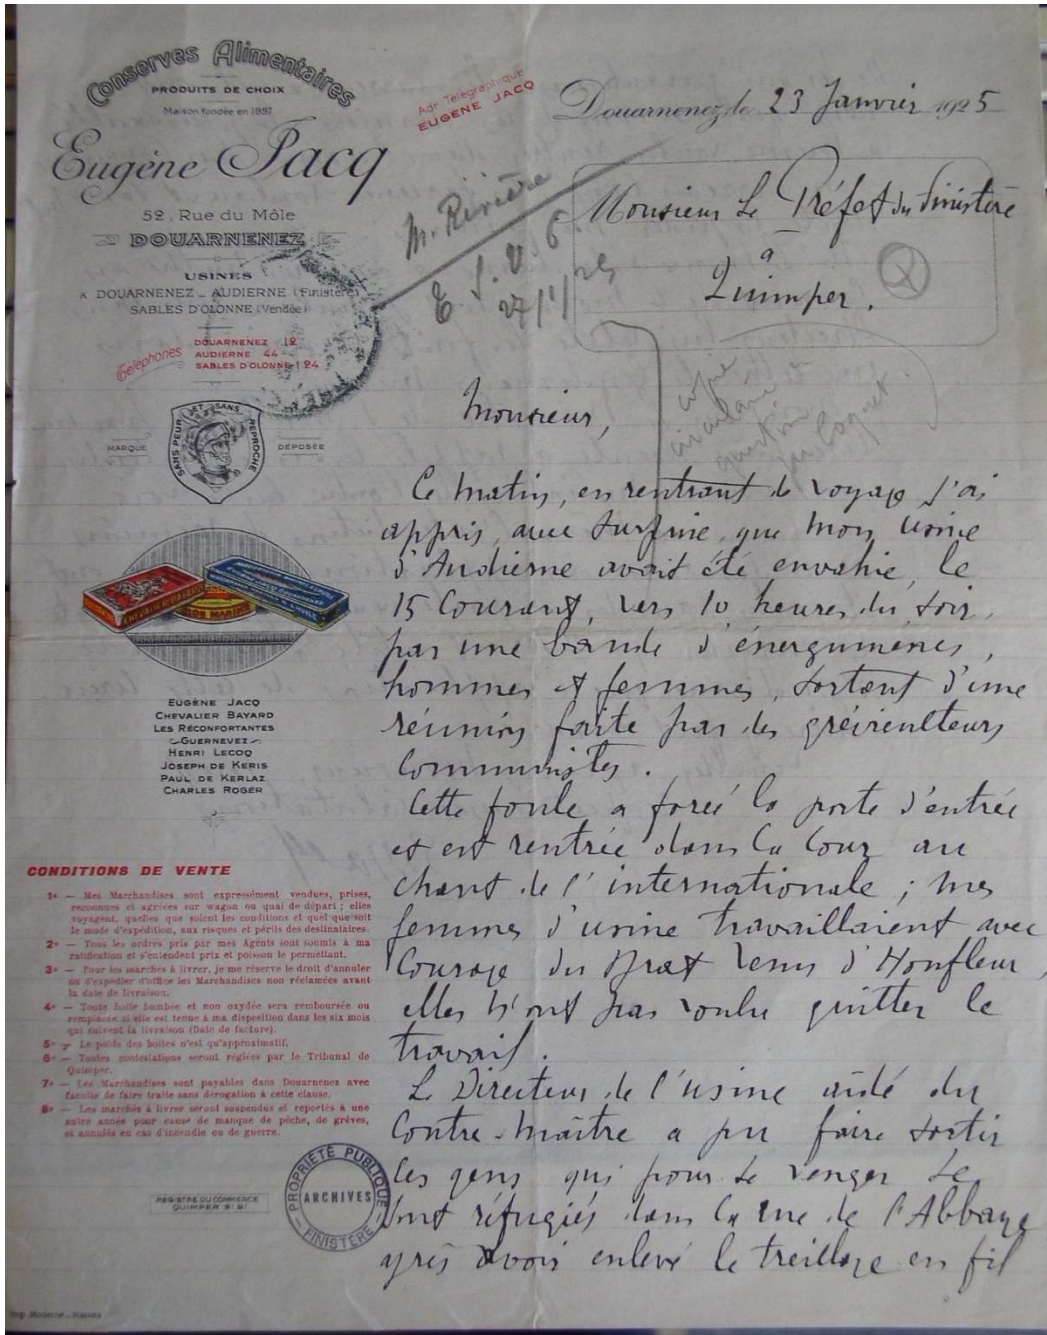 Conserves Alimentaires
PRODUITS DE CHOIX
Maison fondée en 1897
Eugène Jacq
52, Rue du Môle
DOUARNENEZ
USINES
A DOUARNENEZ _ AUDIERNE (Finistère)
SABLES D'OLONNE (Vendée)
Téléphones
DOUARNENEZ 12
AUDIERNE 44
SABLES D'OLONNE 124
Adr Télégraphique
EUGÈNE JACQ
Douarnenez, le 23 Janvier 1925
M. Rivière
27/1/25
Monsieur Le Préfet du Finistère
à
Quimper.
MARQUE
SANS PEUR ET SANS REPROCHE
DÉPOSÉE
CHEVALIER BAYARD
EUGÈNE JACQ
CHEVALIER BAYARD
LES RÉCONFORTANTES
GUERNEVEZ
HENRI LECOQ
JOSEPH DE KERIS
PAUL DE KERLAZ
CHARLES ROGER
CONDITIONS DE VENTE
1º — Mes Marchandises sont expressément vendues, prises,
reconnues et agréées sur wagon ou quai de départ ; elles
voyagent, quelles que soient les conditions et quel que soit
le mode d'expédition, aux risques et périls des destinataires.
2º — Tous les ordres pris par mes Agents sont soumis à ma
ratification et s'entendent prix et poisson le permettant.
3º — Pour les marchés à livrer, je me réserve le droit d'annuler
ou d'expédier d'office les Marchandises non réclamées avant
la date de livraison.
4º — Toute boîte bombée et non oxydée sera remboursée ou
remplacée si elle est tenue à ma disposition dans les six mois
qui suivent la livraison (Date de facture).
5º — Le poids des boîtes n'est qu'approximatif.
6º — Toutes contestations seront réglées par le Tribunal de
Quimper.
7º — Les Marchandises sont payables dans Douarnenez avec
faculté de faire traite sans dérogation à cette clause.
8º — Les marchés à livrer seront suspendus et reportés à une
autre année pour cause de manque de pêche, de grèves,
et annulés en cas d'incendie ou de guerre.
REGISTRE DU COMMERCE
QUIMPER 9191
PROPRIÉTÉ PUBLIQUE
ARCHIVES
FINISTÈRE
Imp Moderne - Nantes
Monsieur,
Ce matin, en rentrant de voyage j'ai
appris, avec surprise, que mon usine
d'Audierne avait été envahie, le
15 Courant, vers 10 heures du soir,
par une bande d'énergumènes,
hommes et femmes, sortant d'une
réunion faite par des gréviculteurs
Communistes.
Cette foule a forcé la porte d'entrée
et est rentrée dans la Cour au
chant de l'internationale ; mes
femmes d'usine travaillaient avec
Courage du Sprat venu d'Honfleur,
elles n'ont pas voulu quitter le
travail.
Le Directeur de l'usine aidé du
Contre-maître a pu faire sortir
ces gens qui pour se venger se
sont réfugiés dans la rue de l'Abbaye
après avoir enlevé le treillage en fil